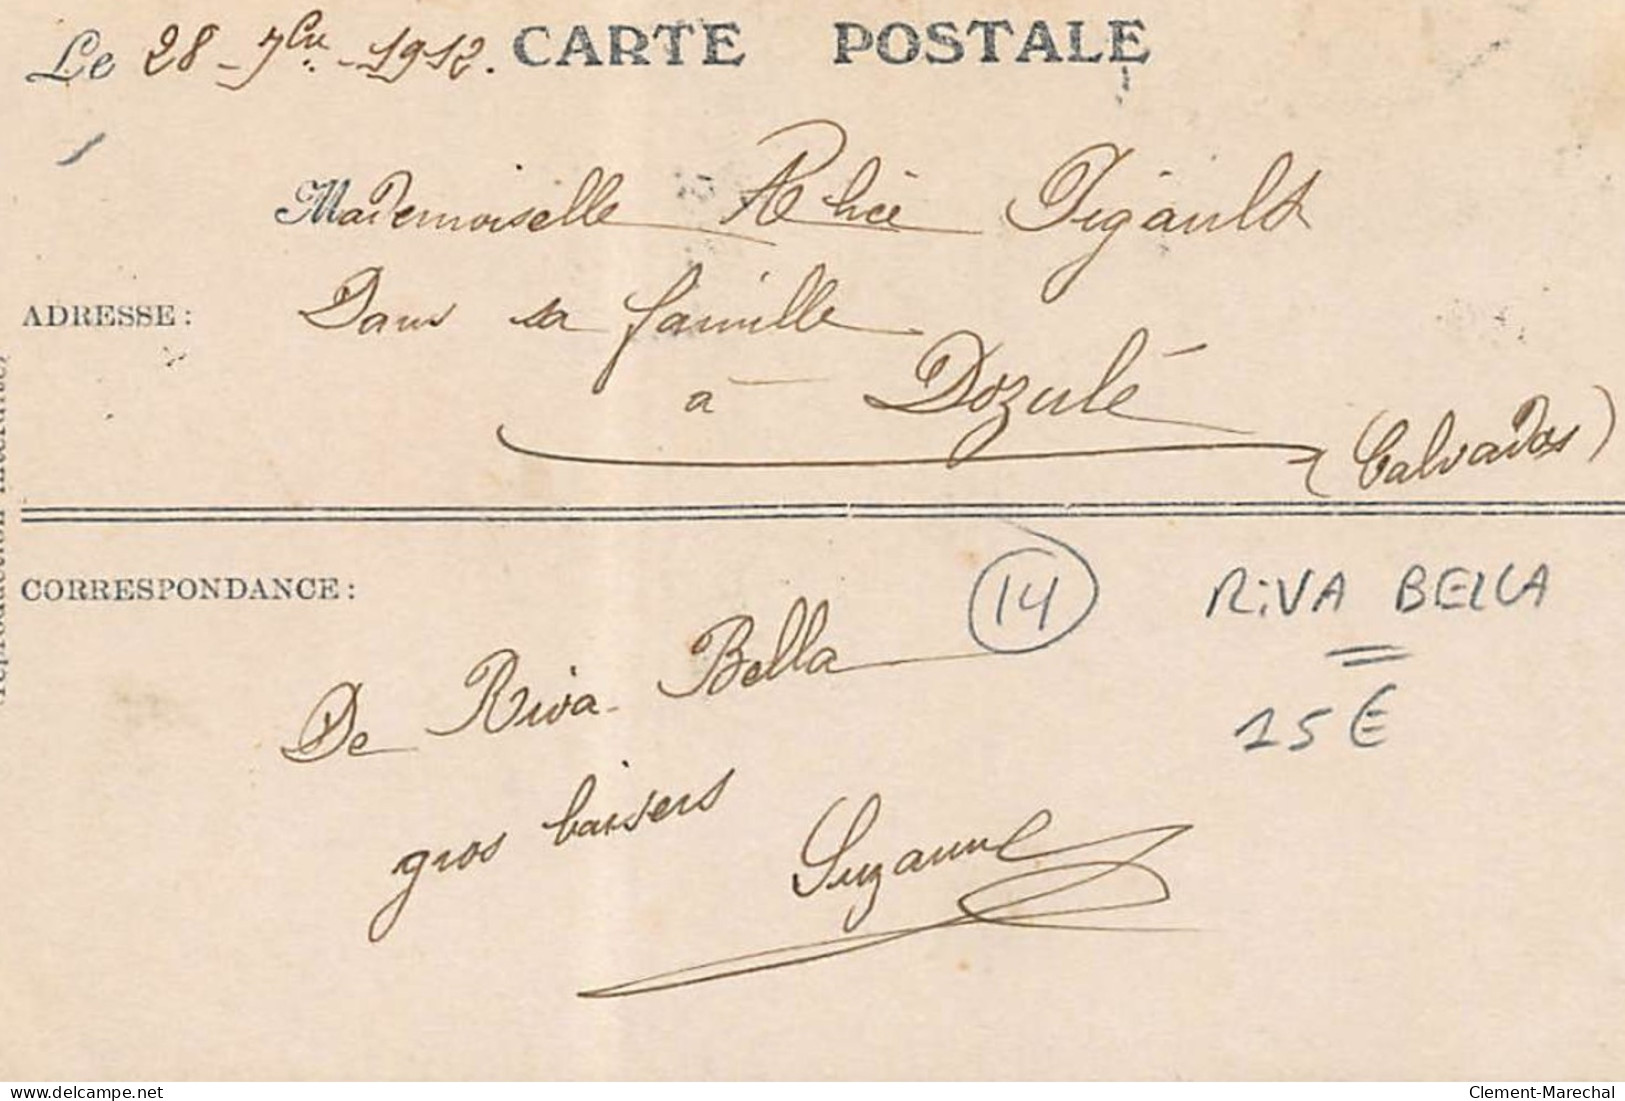 Le 28 - 7bre - 1912. CARTE POSTALE
Mademoiselle Alice Pigault
ADRESSE: Dans sa famille
à Dozulé
(Calvados)
CORRESPONDANCE:
14 RIVA BELLA
15 €
De Riva-Bella
gros baisers
Suzanne
(reproduction interdite)
delcampe.net
Clement-Marechal